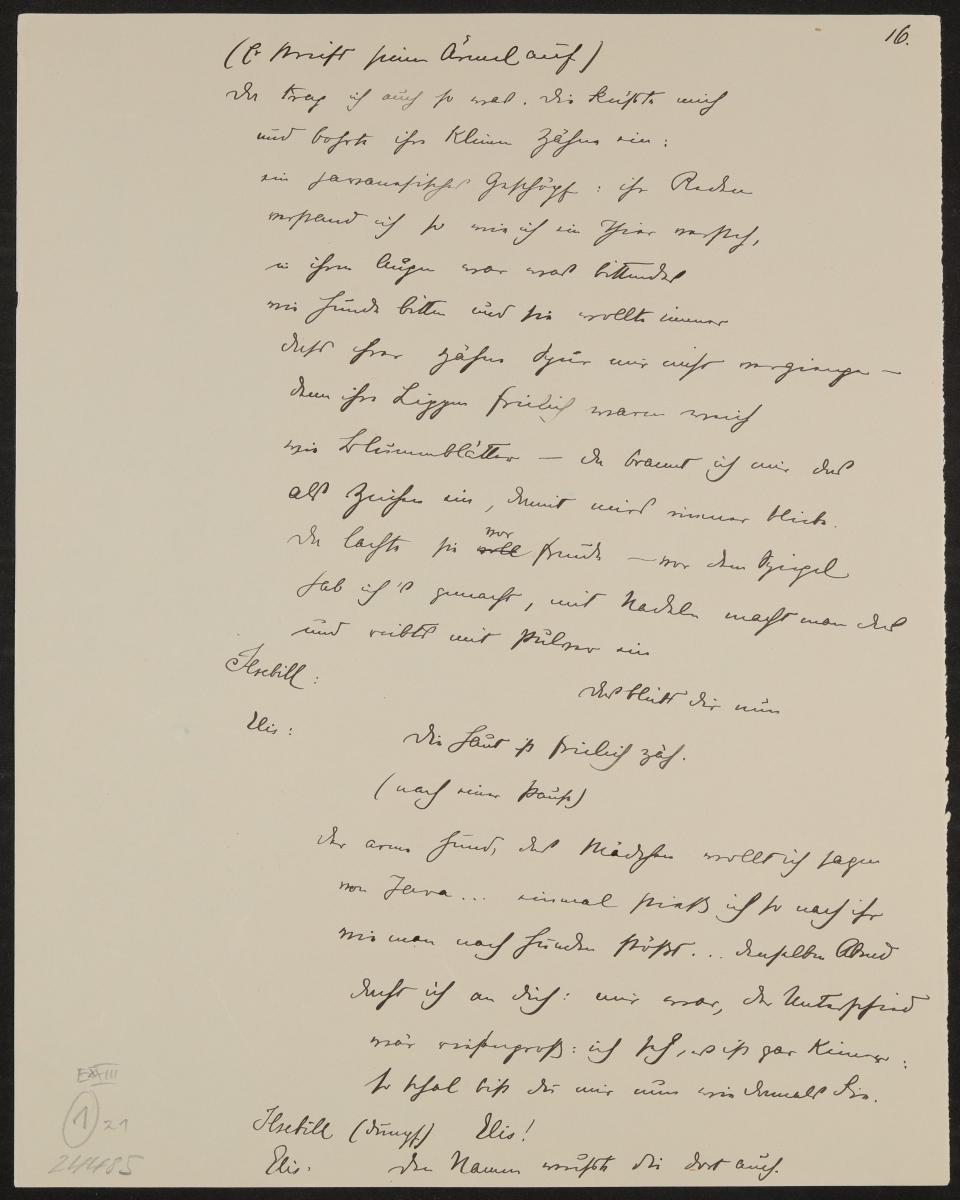 16.
(Er streift seinen Ärmel auf)
Da trag ich auch so was. die küsste mich
und bohrte ihre kleinen Zähne ein:
ein javanesisches Geschöpf: ihr Reden
verstand ich so wie ich ein Thier versteh,
in ihren Augen war was bittendes
wie Hunde bitten und sie wollte immer
dass ihrer Zähne Spur mir nicht vergienge —
denn ihre Lippen freilich waren weich
wie Blumenblätter — da brannt ich mir das
als Zeichen ein, damit was immer bliebe.
Da lachte sie vor Freude — vor dem Spiegel
hab ich's gemacht, mit Nadeln macht man das
und reibts mit Pulver ein
Ilsebill:
das bleibt dir nun
Elis: Die Haut ist freilich zäh.
(nach einer Pause)
der arme Hund, das Mädchen wollt ich sagen
von Java... einmal stieß ich so nach ihr
wie man nach Hunden stößt... denselben Abend
dacht ich an dich: mir war, der Unterschied
wär riesengroß: ich seh, es ist gar keiner:
so schal bist du mir nun wie damals Sie.
Ilsebill (dumpf) Elis!
Elis. den Namen wusste die dort auch.
EXXIII
1 21
24485